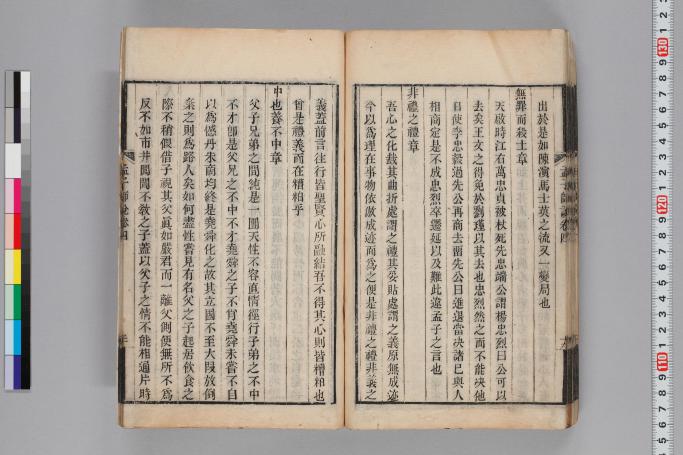 出於是如陳潢馬士英之流又一變局也
無罪而殺士章
天啟時江右萬忠貞被杖死先忠端公謂楊忠烈曰公可以
去矣王文之得免於劉瑾以其去也忠烈然之而不能决他
日使李忠毅過先公再商去畱先公曰進退當决諸已與人
相商定是不成忠烈卒遷延以及難此違孟子之言也
非禮之禮章
吾心之化裁其曲折處謂之禮其妥貼處謂之義原無成迹
今以爲理在事物依倣成迹而爲之便是非禮之禮非義之
義蓋前言往行皆聖賢心所融結吾不得其心則皆糟粕也
曾是禮義而在糟粕乎
中也養不中章
父子兄弟之間純是一團天性不容直情徑行子弟之不中
不才卽是父兄之不中不才堯舜之子不肖堯舜未嘗不自
以爲慝丹朱商均終是堯舜化之故其立國不至大段放倒
棄之則爲路人矣如何盡性嘗見有名父之子起居飲食之
際不稍假借子視其父真如嚴君而一離父側便無所不爲
反不如市井閭閻不敎之子蓋以父子之情不能相通片時
孟子師說卷四